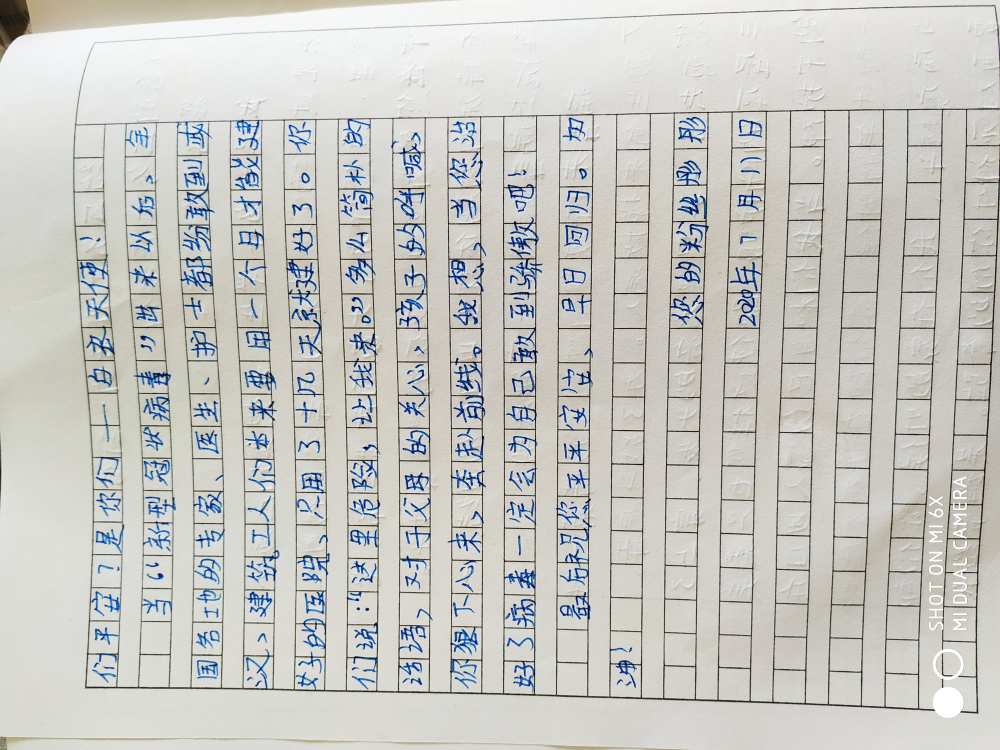 们平安?是你们——白衣天使!
当“新型冠状病毒”出来以后、全
国各地的专家、医生、护士都纷敢到武
汉、建筑工人们本来要用一个月才能建
好的医院、只用了十几天就建好了。你
们说:“这里危险,让我来。”多么简朴的
话语,对于父母的关心、孩子的呼喊、
你狠下心来,奔赴前线。我想,当您治
好了病毒一定会为自己敢到骄傲吧!
最后祝您平平安安、早日回归。加
油!
您的粉丝彤彤
2020年7月11日
SHOT ON MI 6X
MI DUAL CAMERA